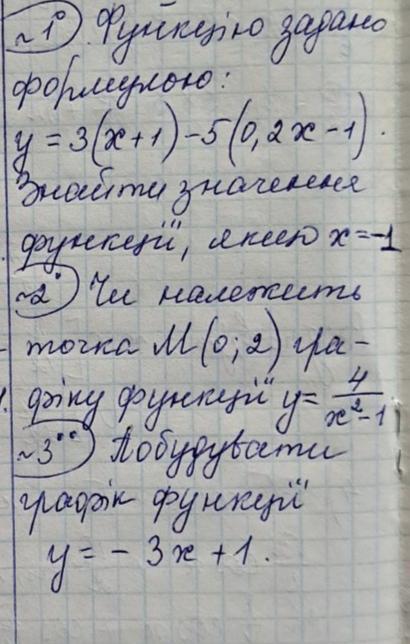 №1° Функцію задано
формулою:
y = 3(x+1) - 5(0,2x - 1).
Знайти значення
функції, якщо x = -1
№2° Чи належить
точка M(0; 2) гра-
фіку функції y = 4/(x² - 1)
№3°° Побудувати
графік функції
y = - 3x + 1.